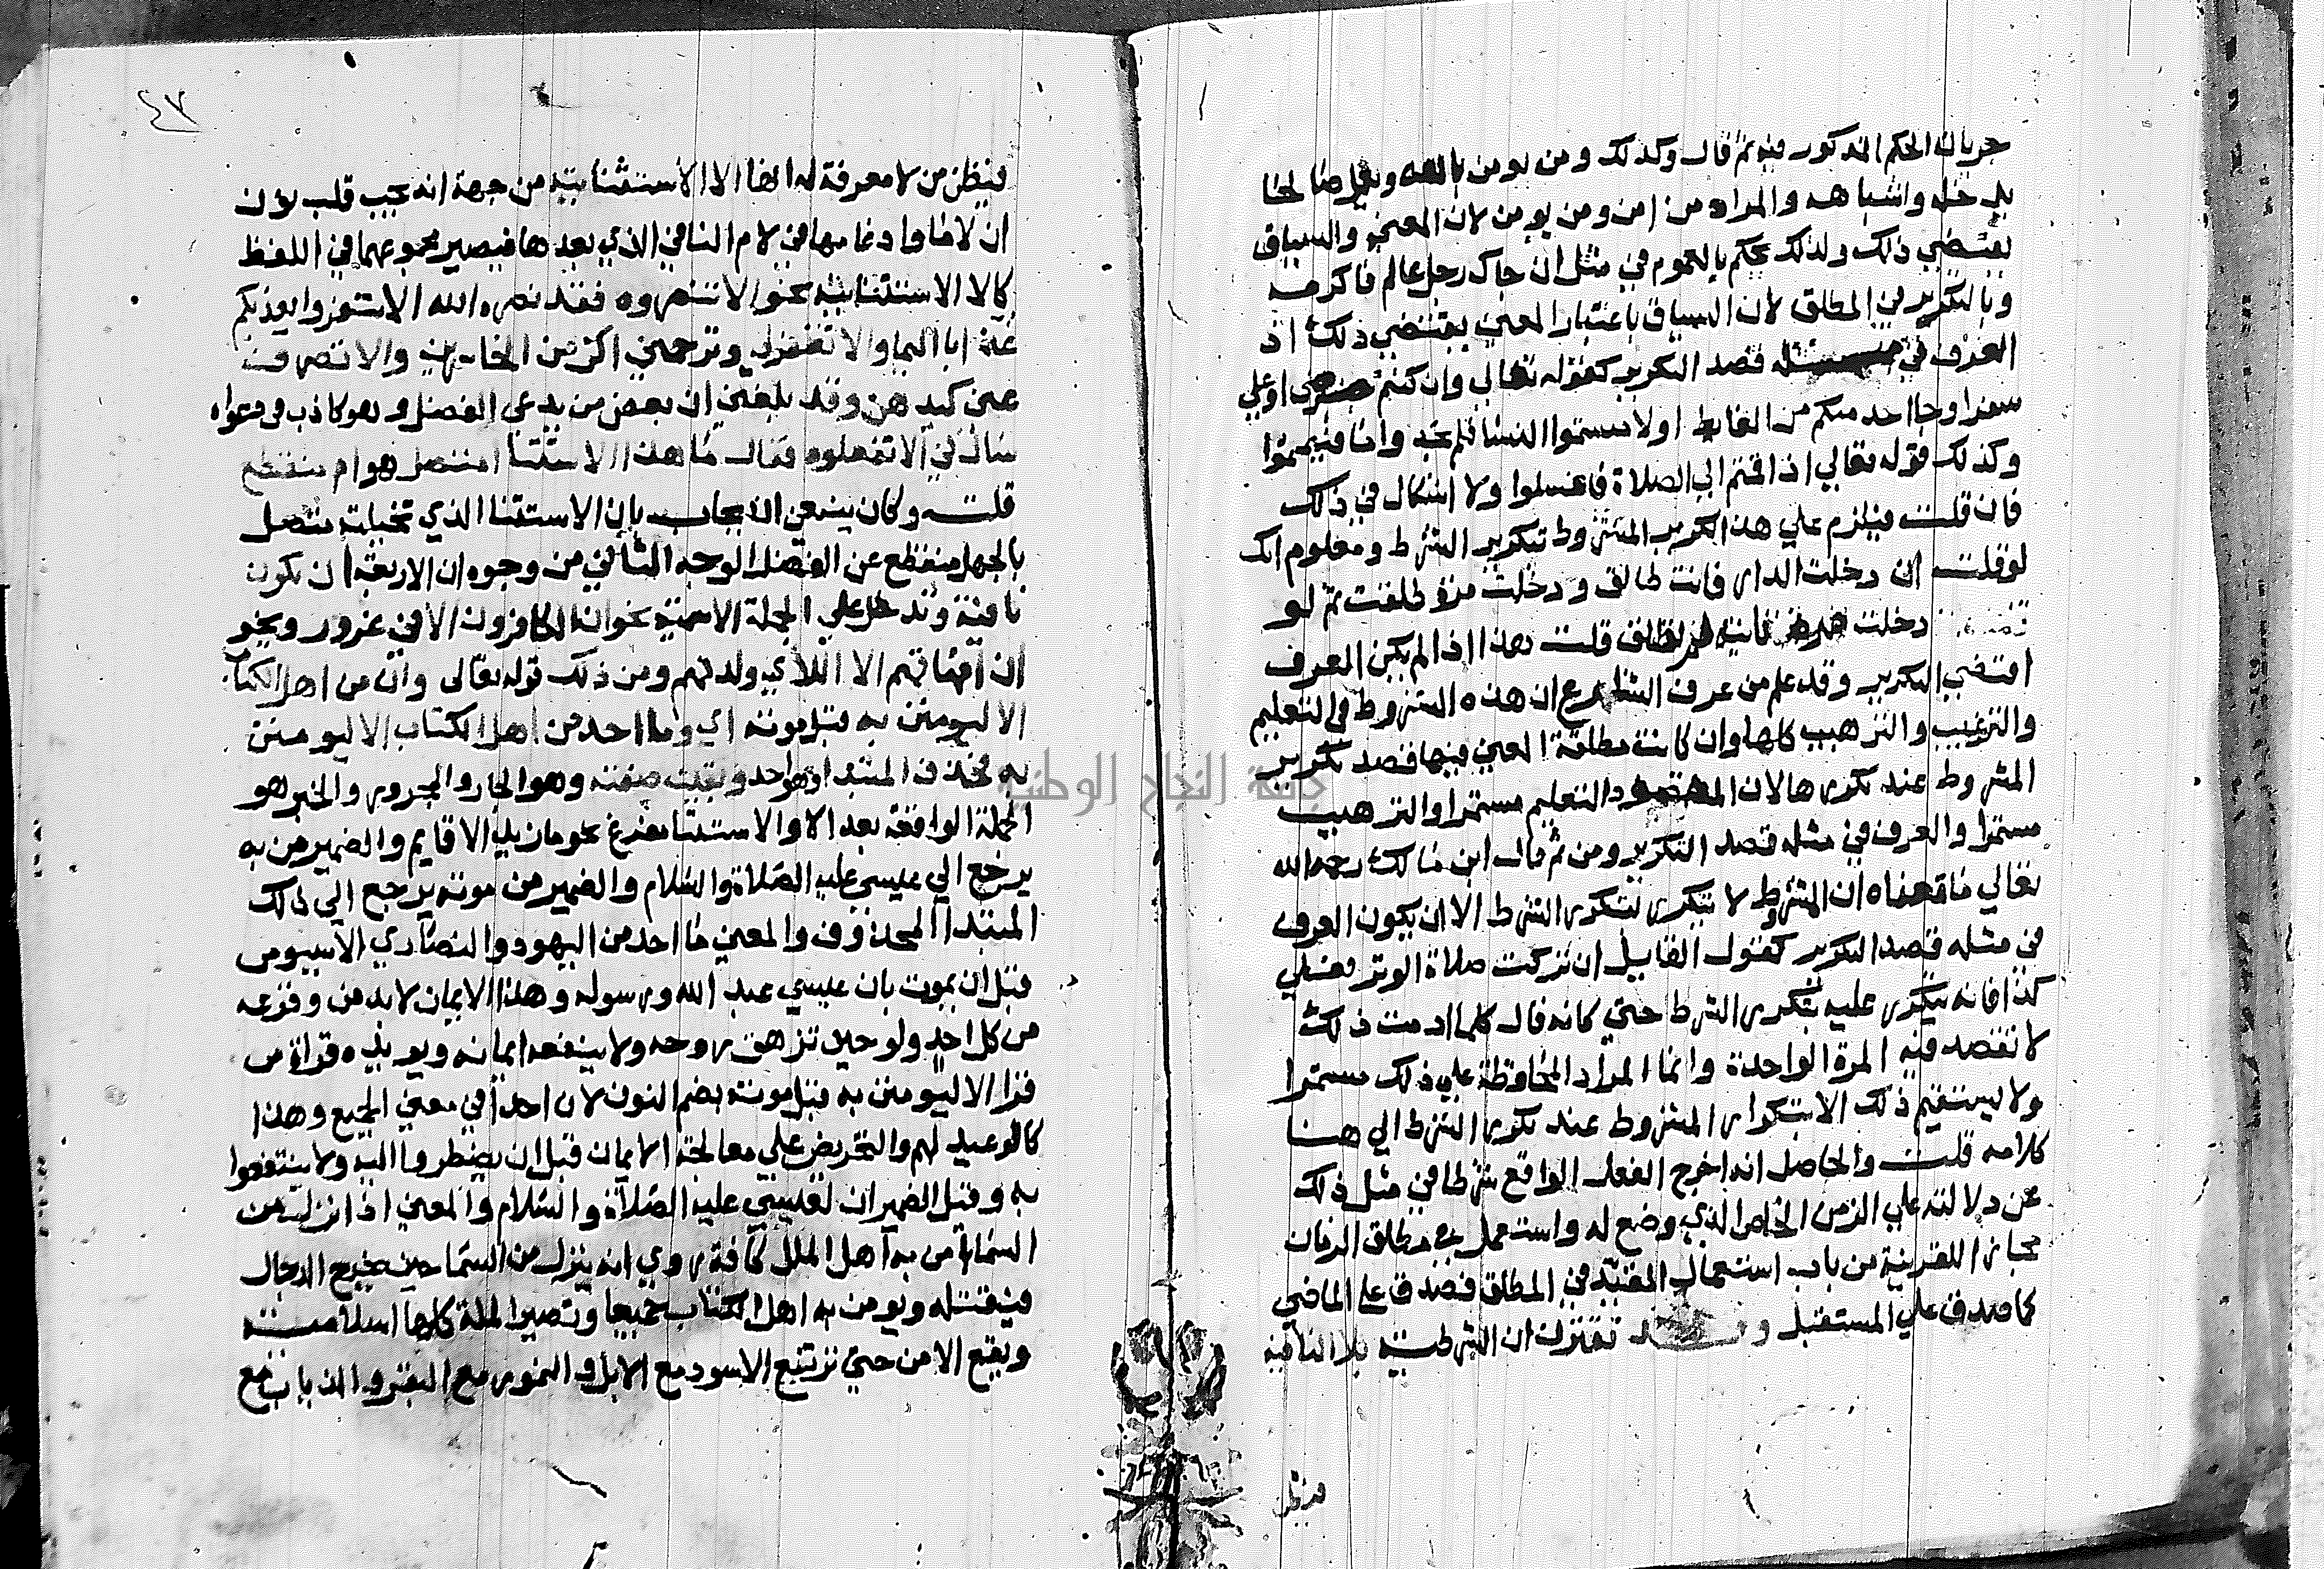 جريان الحكم المذكور فيه ثم قال وكذلك ومن يومن بالله ويعمل صالحا
يدخله واشباهه والمراد من امن ومن يومن لان المعني والسياق
يقتضي ذلك ولذلك يحكم بالعموم في مثل ان جاك رجل عالم فاكرمه
وبالتكرير في المطلق لان السياق باعتبار المعني يقتضي ذلك اذ
العرف في مثله قصد التكرير كقوله تعالي وان كنتم مرضي او علي
سفر او جا احد منكم من الغايط او لامستم النسا فلم تجدوا ما فتيمموا
وكذلك قوله تعالي اذا قمتم الي الصلاة فاغسلوا ولا اشكال في ذلك
فان قلت فيلزم علي هذا تكرير المشروط بتكرير الشرط ومعلوم انك
لو قلت ان دخلت الدار فانت طالق ودخلت مرة طلقت ثم لو
دخلت مرة ثانية لم تطلق قلت هذا اذا لم يكن العرف
اقتضي التكرير وقد علم من عرف الشرع ان هذه الشروط في التعليم
والترغيب والترهيب كلها وان كانت مطلقة المعني فيها قصد تكرير
المشروط عند تكررها لان المقصود التعليم مستمرا والترهيب
مستمرا والعرف في مثله قصد التكرير ومن ثم قال ابن مالك رحمه الله
تعالي ما معناه ان المشروط لا يتكرر بتكرر الشرط الا ان يكون العرف
في مثله قصد التكرير كقول القايل ان تركت صلاة الوتر فعلي
كذا فانه يتكرر عليه بتكرر الشرط حتي كانه قال كلما اذ ذلك
لا تقصد فيه المرة الواحدة وانما المراد المحافظة علي ذلك مستمرا
ولا يستقيم ذلك الا بتكرار المشروط عند تكرر الشرط الي هنا
كلامه قلت والحاصل انه اخرج الفعل الواقع شرطا في مثل ذلك
عن دلالته علي الزمن الخاص الذي وضع له واستعمل في مطلق الزمان
مجازا للقرينة من باب استعمال المقيد في المطلق فصدق علي الماضي
كما صدق علي المستقبل وقد تقترن ان الشرطية بلا النافية
فيظن
٤٧
فيظن من لا معرفة له انها الا الاستثنائية من جهة انه يجب قلب نون
ان لاما وادغامها في لام النافي الذي بعدها فيصير مجموعهما في اللفظ
كالا الاستثنائية نحو الا تنصروه فقد نصره الله الا تنفروا يعذبكم
عذابا اليما والا تغفر لي وترحمني اكن من الخاسرين والا تصرف
عني كيدهن وقد بلغني ان بعض من يدعي الفضل وهو كاذب في دعواه
سال في الا تفعلوه فقال ما هذا الاستثنا امتصل هو ام منقطع
قلت وكان ينبغي ان يجاب بان الاستثنا الذي تخيلته متصل
بالجهل منقطع عن الفضل الوجه الثاني من وجوه ان الاربعة ان تكون
نافية وتدخل علي الجملة الاسمية نحو ان الكافرون الا في غرور ونحو
ان امهاتهم الا اللاي ولدنهم ومن ذلك قوله تعالي وان من اهل الكتاب
الا ليومنن به قبل موته اي وما احد من اهل الكتاب الا ليومنن
به فحذف المبتدا وهو احد وبقيت صفته وهو الجار والمجرور والخبر هو
الجملة الواقعة بعد الا والاستثنا مفرغ نحو ما زيد الا قايم والضمير من به
يرجع الي عيسي عليه الصلاة والسلام والضمير من موته يرجع الي ذلك
المبتدا المحذوف والمعني ما احد من اليهود والنصاري الا سيومن
قبل ان يموت بان عيسي عبد الله ورسوله وهذا الايمان لابد من وقوعه
من كل احد ولو حين تزهق روحه ولا ينفعه ايمانه ويويده قراة من
قرا الا ليومنن به قبل موتهم بضم النون لان احدا في معني الجمع وهذا
كالوعيد لهم والتحريض علي معالجة الايمان قبل ان يضطروا اليه ولا ينتفعوا
به وقيل الضميران لعيسي عليه الصلاة والسلام والمعني اذا نزل من
السما امن به اهل الملل كافة روي انه ينزل من السما حين يخرج الدجال
فيقتله ويومن به اهل الكتاب جميعا وتصير الملة كلها اسلامية
ويقع الامن حتي ترتتع الاسود مع الابل والنمور مع البقر والذياب مع
جامعة النجاح الوطنية